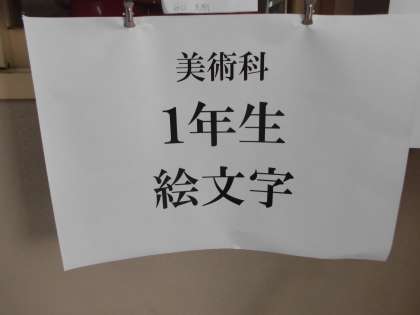 美術科
1年生
絵文字